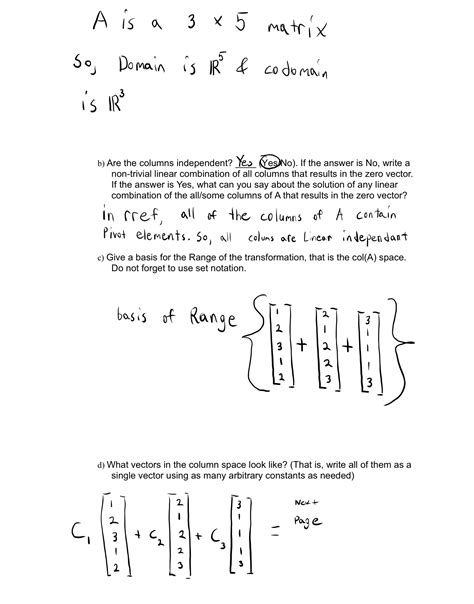 A is a 3 x 5 matrix
So, Domain is ℝ⁵ & codomain
is ℝ³
b) Are the columns independent? Yes (Yes/No). If the answer is No, write a
non-trivial linear combination of all columns that results in the zero vector.
If the answer is Yes, what can you say about the solution of any linear
combination of the all/some columns of A that results in the zero vector?
in rref, all of the columns of A contain
Pivot elements. So, all colums are Linear independant
c) Give a basis for the Range of the transformation, that is the col(A) space.
Do not forget to use set notation.
basis of Range { [1 2 3 1 2] + [2 1 2 2 3] + [3 1 1 1 3] }
d) What vectors in the column space look like? (That is, write all of them as a
single vector using as many arbitrary constants as needed)
C₁ [1 2 3 1 2] + C₂ [2 1 2 2 3] + C₃ [3 1 1 1 3] = Next
Page